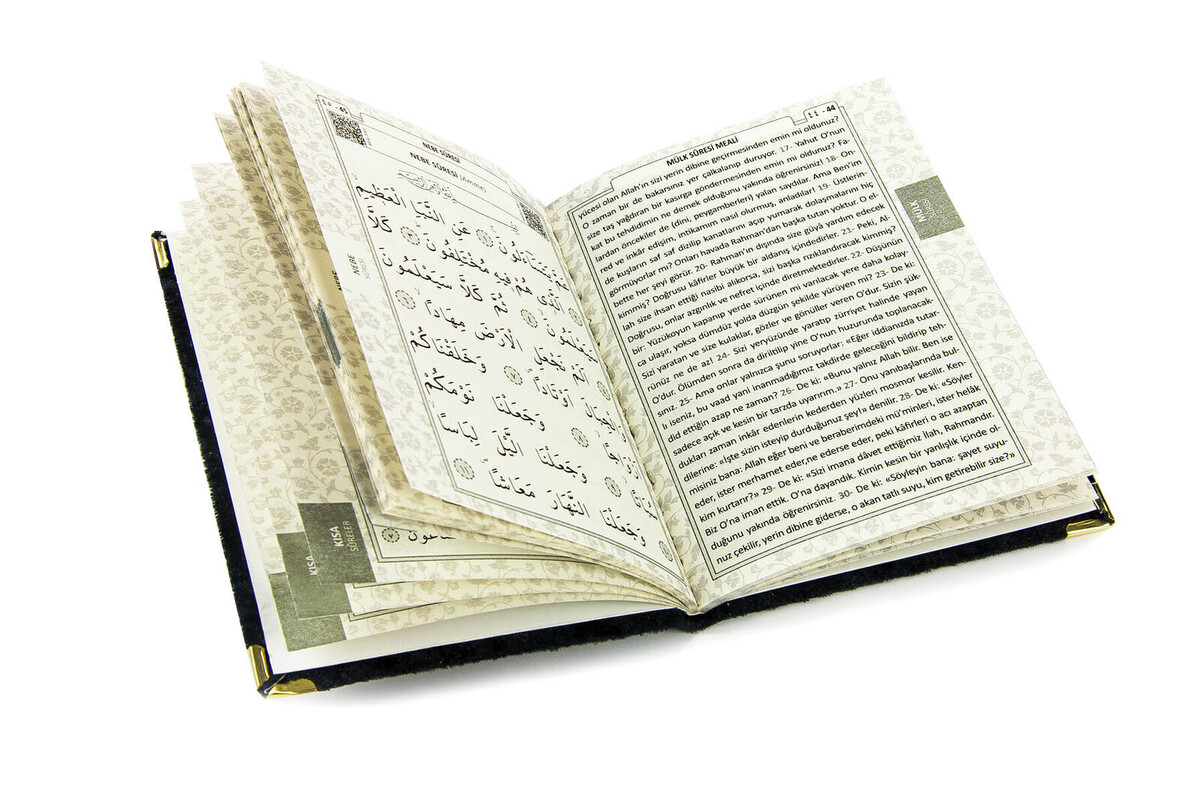 ٤٤ - 44
MÜLK SÛRESİ MEALİ
yücesi olan Allah'ın sizi yerin dibine geçirmesinden emin mi oldunuz?
O zaman bir de bakarsınız yer çalkalanıp duruyor. 17- Yahut O'nun
size taş yağdıran bir kasırga göndermesinden emin mi oldunuz? Fa-
kat bu tehdidimin ne demek olduğunu yakında öğrenirsiniz! 18- On-
dan öncekiler de (dini, peygamberleri) yalan saydılar. Ama Ben'im
red ve inkâr edişim, intikamım nasıl olurmuş, anladılar! 19- Üstlerin-
de kuşların saf saf dizilip kanatlarını açıp yumarak dolaşmalarını hiç
görmüyorlar mı? Onları havada Rahman'dan başka tutan yoktur. O el-
bette her şeyi görür. 20- Rahman'ın dışında size gûyâ yardım edecek
kimmiş? Doğrusu kâfirler büyük bir aldanış içindedirler. 21- Peki, Al-
lah size ihsan ettiği nasibi alıkorsa, sizi başka rızıklandıracak kimmiş?
Doğrusu, onlar azgınlık ve nefret içinde diretmektedirler. 22- Düşünün
bir: Yüzükoyun kapanıp yerde sürünen mi varılacak yere daha kolay-
ca ulaşır, yoksa dümdüz yolda düzgün şekilde yürüyen mi? 23- De ki:
Sizi yaratan ve size kulaklar, gözler ve gönüller veren O'dur. Sizin şük-
rünüz ne de az! 24- Sizi yeryüzünde yaratıp zürriyet halinde yayan
O'dur. Ölümden sonra da diriltilip yine O'nun huzurunda toplanacak-
sınız. 25- Ama onlar yalnızca şunu soruyorlar: «Eğer iddianızda tutar-
lı iseniz, bu vaad yani inanmadığımız takdirde geleceğini bildirip teh-
did ettiğin azap ne zaman? 26- De ki: «Bunu yalnız Allah bilir. Ben ise
sadece açık ve kesin bir tarzda uyarırım.» 27- Onu yanıbaşlarında bul-
dukları zaman inkâr edenlerin kederden yüzleri mosmor kesilir. Ken-
dilerine: «İşte sizin isteyip durduğunuz şey!» denilir. 28- De ki: «Söyler
misiniz bana: Allah eğer beni ve beraberimdeki mü'minleri, ister helâk
eder, ister merhamet eder,ne ederse eder, peki kâfirleri o acı azaptan
kim kurtarır?» 29- De ki: «Sizi imana dâvet ettiğimiz ilah, Rahmandır.
Biz O'na iman ettik. O'na dayandık. Kimin kesin bir yanlışlık içinde ol-
duğunu yakında öğrenirsiniz. 30- De ki: «Söyleyin bana: şayet suyu-
nuz çekilir, yerin dibine giderse, o akan tatlı suyu, kim getirebilir size?»
MÜLK
SÛRESİ
٤٥ - 45
NEBE SÛRESİ
NEBE SÛRESİ (Amme)
عَمَّ يَتَسَٓاءَلُونَ ﴿١﴾ عَنِ النَّبَأِ الْعَظِيمِ
اَلَّذِي هُمْ فِيهِ مُخْتَلِفُونَ ﴿٣﴾ كَلَّا
سَيَعْلَمُونَ ﴿٤﴾ ثُمَّ كَلَّا سَيَعْلَمُونَ
اَلَمْ نَجْعَلِ الْاَرْضَ مِهَادًا
وَالْجِبَالَ اَوْتَادًا ﴿٧﴾ وَخَلَقْنَاكُمْ
اَزْوَاجًا ﴿٨﴾ وَجَعَلْنَا نَوْمَكُمْ
وَجَعَلْنَا الَّيْلَ لِبَاسًا
وَجَعَلْنَا النَّهَارَ مَعَاشًا
NEBE
KISA
SÛRELER
KISA